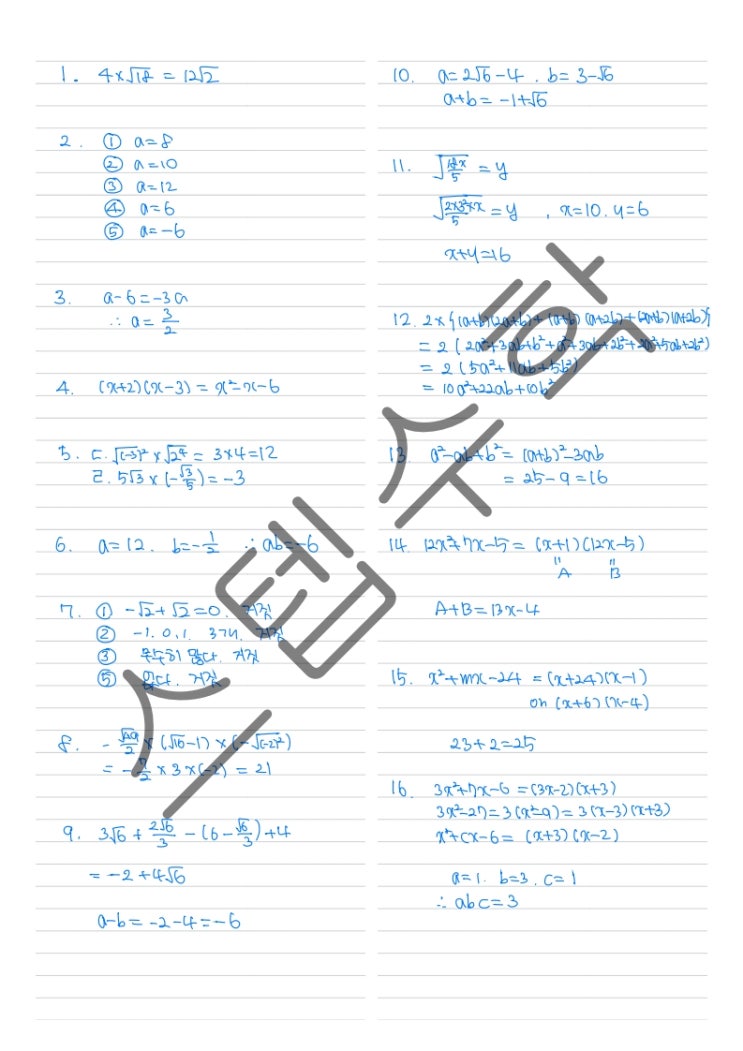 1. 4×√18 = 12√2
2. ① a=8
② a=10
③ a=12
④ a=6
⑤ a=-6
3. a-6=-3a
∴ a=3/2
4. (x+2)(x-3) = x²-x-6
5. ㄷ. √(-3)² × √2⁴ = 3×4=12
ㄹ. 5√3 × (-√3/5) = -3
6. a=12. b=-1/2 ∴ ab=-6
7. ① -√2+√2=0. 거짓
② -1. 0. 1. 3개. 거짓
③ 무수히 많다. 거짓
⑤ 있다. 거짓
8. -√49/2 × (√16-1) × (-√(-2)²)
= -7/2 × 3 × (-2) = 21
9. 3√6 + 2√6/3 - (6-√6/3)+4
= -2+4√6
a-b = -2-4 = -6
10. a=2√6-4. b=3-√6
a+b = -1+√6
11. √18x/5 = y
√2×3²×x/5 = y , x=10. y=6
x+y=16
12. 2×{(a+b)(2a+b)+(a+b)(a+2b)+(2a+b)(a+2b)}
= 2(2a²+3ab+b²+a²+3ab+2b²+2a²+5ab+2b²)
= 2(5a²+11ab+5b²)
= 10a²+22ab+10b²
13. a²-ab+b² = (a+b)²-3ab
= 25-9=16
14. 12x²+7x-5 = (x+1)(12x-5)
" "
A B
A+B=13x-4
15. x²+mx-24 = (x+24)(x-1)
or (x+6)(x-4)
23+2=25
16. 3x²+7x-6 = (3x-2)(x+3)
3x²-27 = 3(x²-9) = 3(x-3)(x+3)
x²+cx-6 = (x+3)(x-2)
a=1. b=3. c=1
∴ abc=3
스텝수학